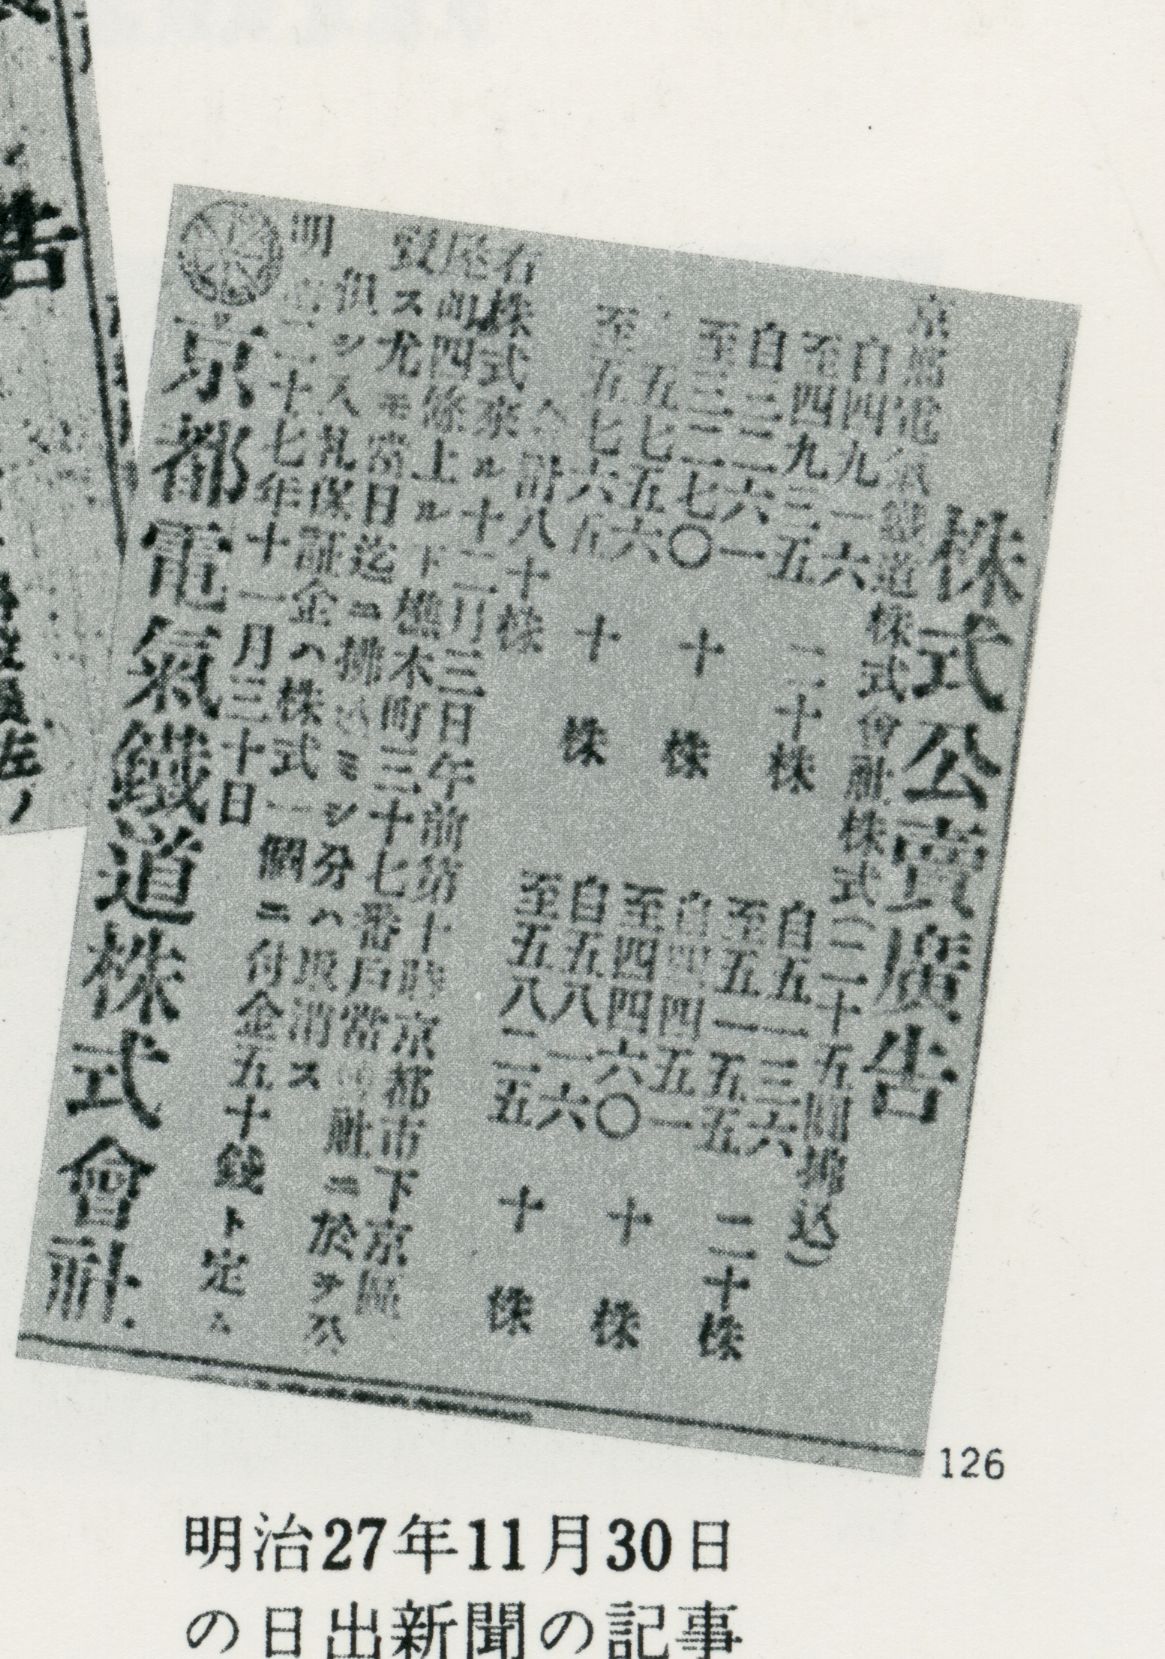 株式公賣廣告
京都電氣鐵道株式會社株式(二十五圓拂込)
自四九一六
至四九三五
二十株
自五一三六
至五一五五
二十株
自三二六一
至三二七〇
十株
自四四五一
至四四六〇
十株
五七五六
至五七六五
十株
自五八一六
至五八二五
十株
合計八十株
右株式來ル十二月三日午前第十時京都市下京區
尾町四條上ル下樵木町三十七番戶當會社ニ於テ公
賣ス尤モ當日迄ニ拂込ミシ分ハ取消ス
但シ入札保証金ハ株式一個ニ付金五十錢ト定ム
明治二十七年十一月三十日
京都電氣鐵道株式會社
告
左ノ
126
明治27年11月30日
の日出新聞の記事